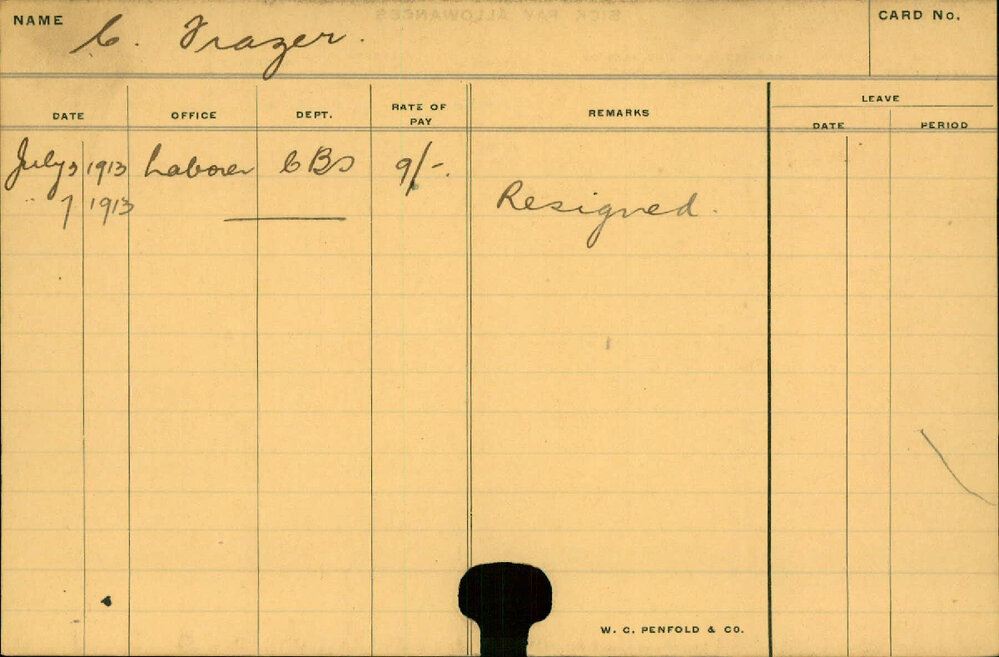 NAME C. Frazer. CARD No.
DATE OFFICE DEPT. RATE OF PAY REMARKS LEAVE DATE PERIOD
July 3 1913 Laborer CBS 9/-.
" 7 1913 Resigned.
W. C. PENFOLD & CO.